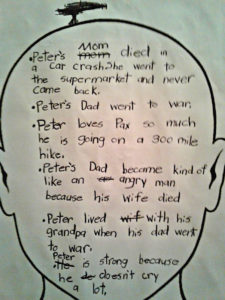 Mom
•Peter's mom died in
a car crash. She went to
the supermarket and never
came back.
•Peter's Dad went to war.
•Peter loves Pax so much
he is going on a 300 mile
hike.
•Peter's Dad became kind of
like an angry man
because his wife died
•Peter lived with his
grandpa when his dad went
to war.
Peter
•He is strong because
he doesn't cry
a lot.